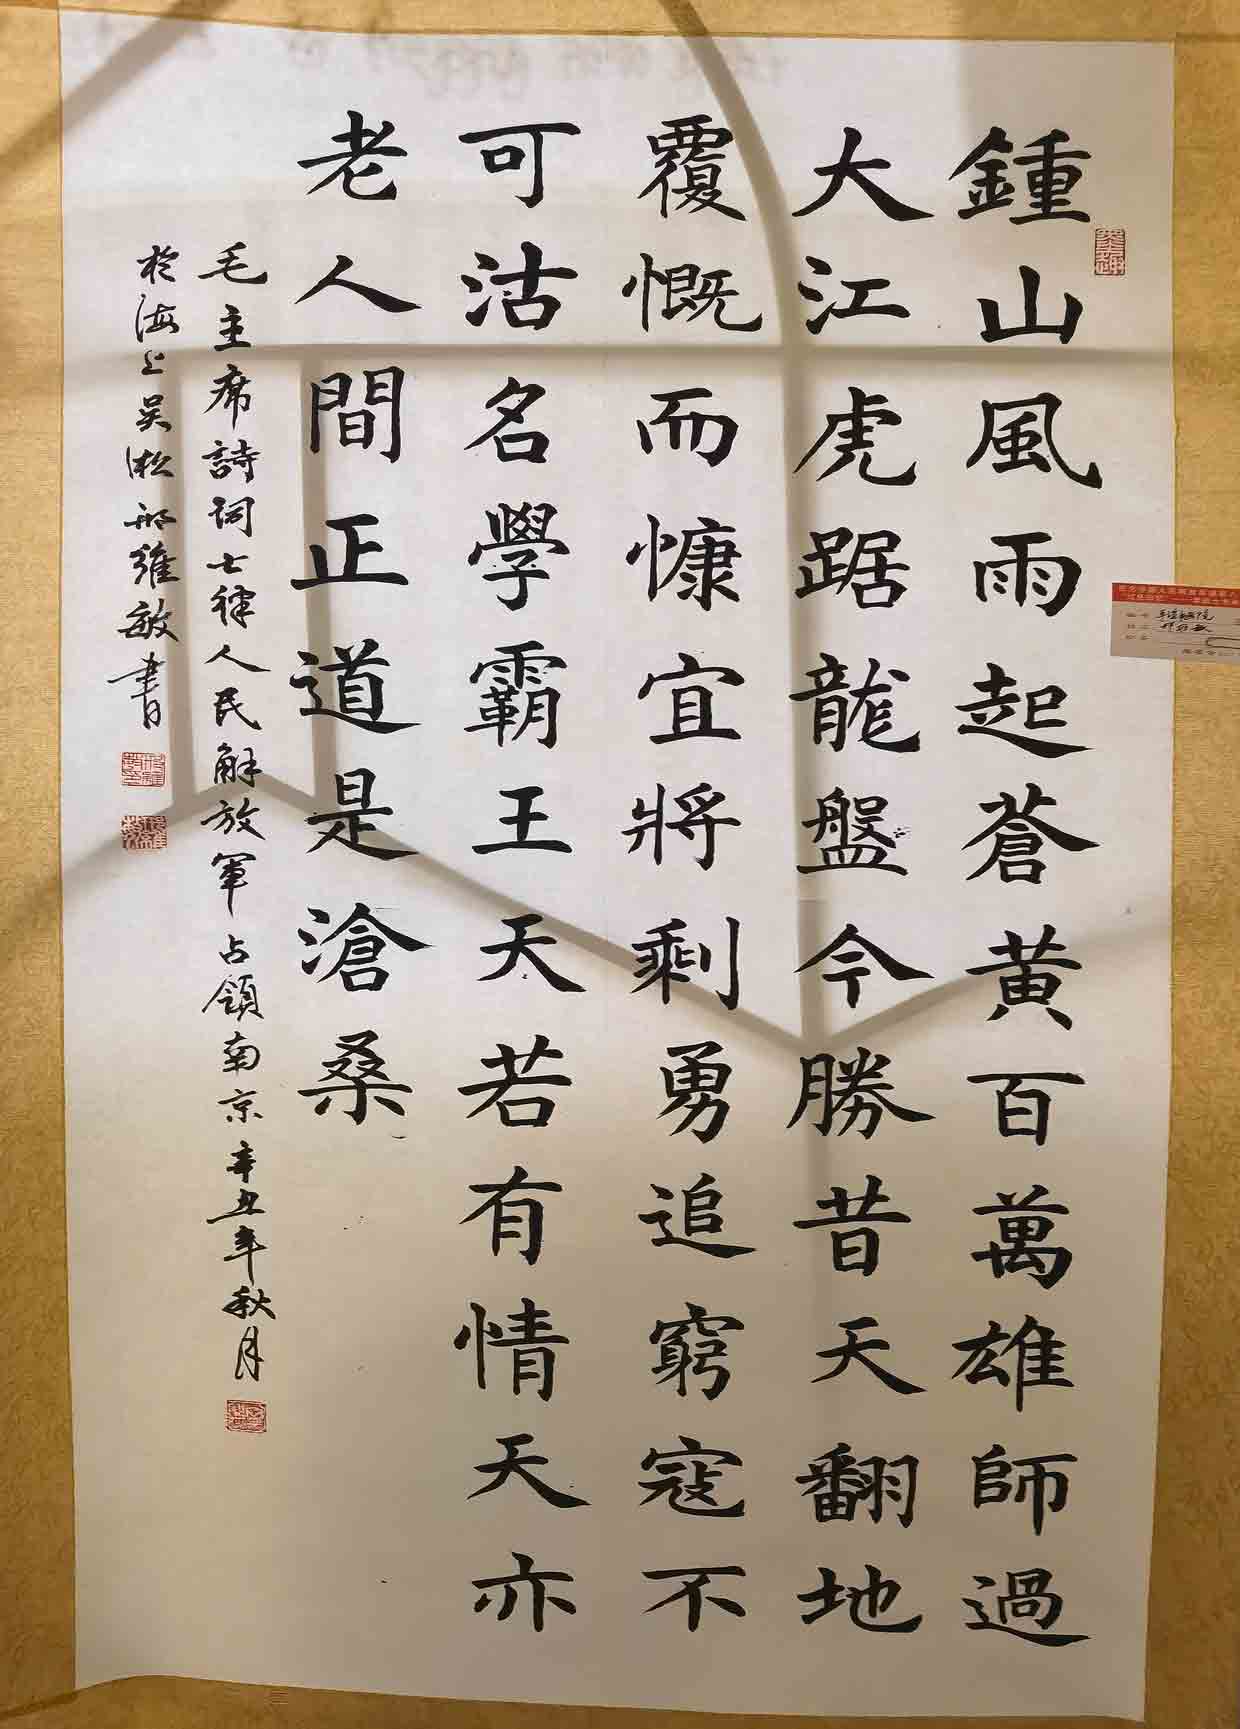 鍾山風雨起蒼黃百萬雄師過
大江虎踞龍盤今勝昔天翻地
覆慨而慷宜將剩勇追窮寇不
可沽名學霸王天若有情天亦
老人間正道是滄桑
毛主席詩詞七律人民解放軍占領南京辛丑年秋月
於海上吴淞邢維敏書